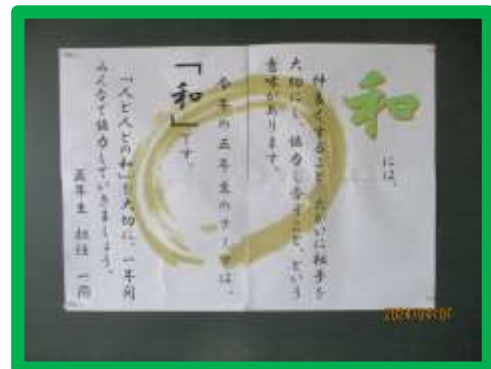 和
には、
仲良くすること、お互いに相手を
大切にし、協力し合うこと、という
意味があります。
今年の五年生のテーマは、
「和」です。
「人と人との和」を大切に、一年間
みんなで協力していきましょう。
五年生 担任 一同